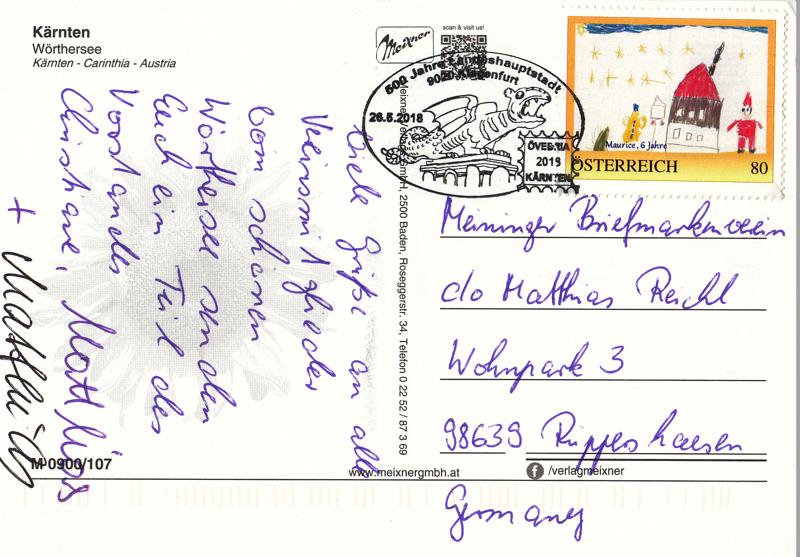 Kärnten
Wörthersee
Kärnten - Carinthia - Austria
Meixner
scan & visit us!
500 Jahre Landeshauptstadt
9020 Klagenfurt
26.5.2018
ÖVEBRIA
2019
KÄRNTEN
Maurice, 6 Jahre
ÖSTERREICH 80
Viele Grüße an alle
Vereinsmitglieder
vom schönen
Wörthersee senden
Euch ein Teil des
Vorstandes
Christiane, Matthias
+
Meixner Verlag GmbH, 2500 Baden, Roseggerstr. 34, Telefon 0 22 52 / 87 3 69
Meininger Briefmarkenverein
c/o Matthias Reichl
Wohnpark 3
98639 Rippershausen
Germany
M-0900/107
www.meixnergmbh.at
f /verlagmeixner